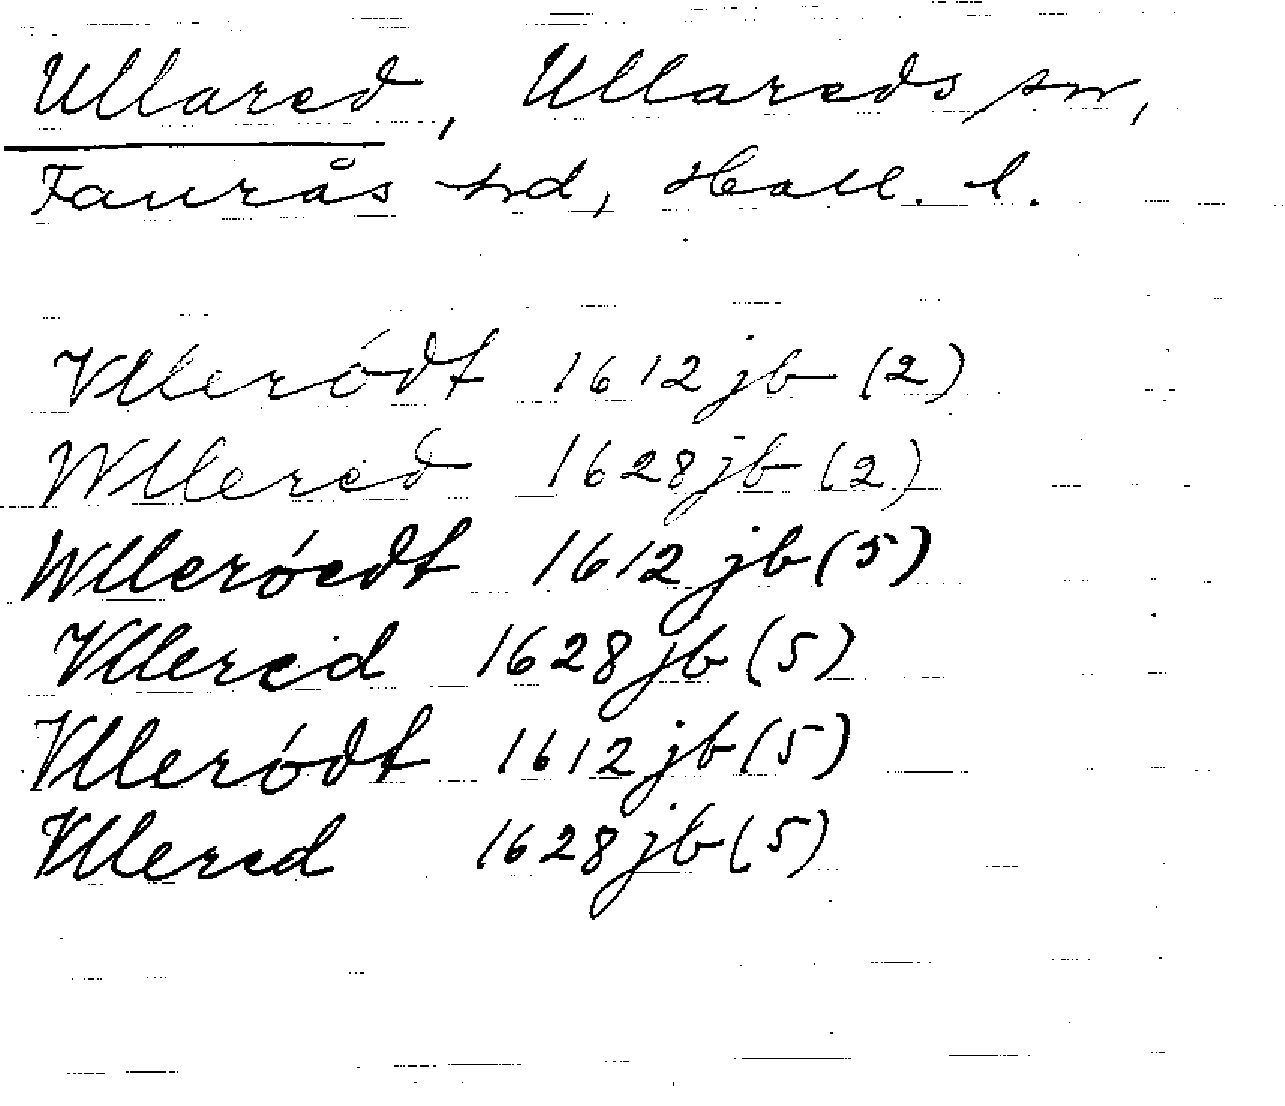 Ullared, Ullareds sn,
Faurås hd, Hall. l.
Vlleródt 1612 jb (2)
Wllered 1628 jb (2)
Wlleróedt 1612 jb (5)
Vllered 1628 jb (5)
Vlleródt 1612 jb (5)
Vllered 1628 jb (5)